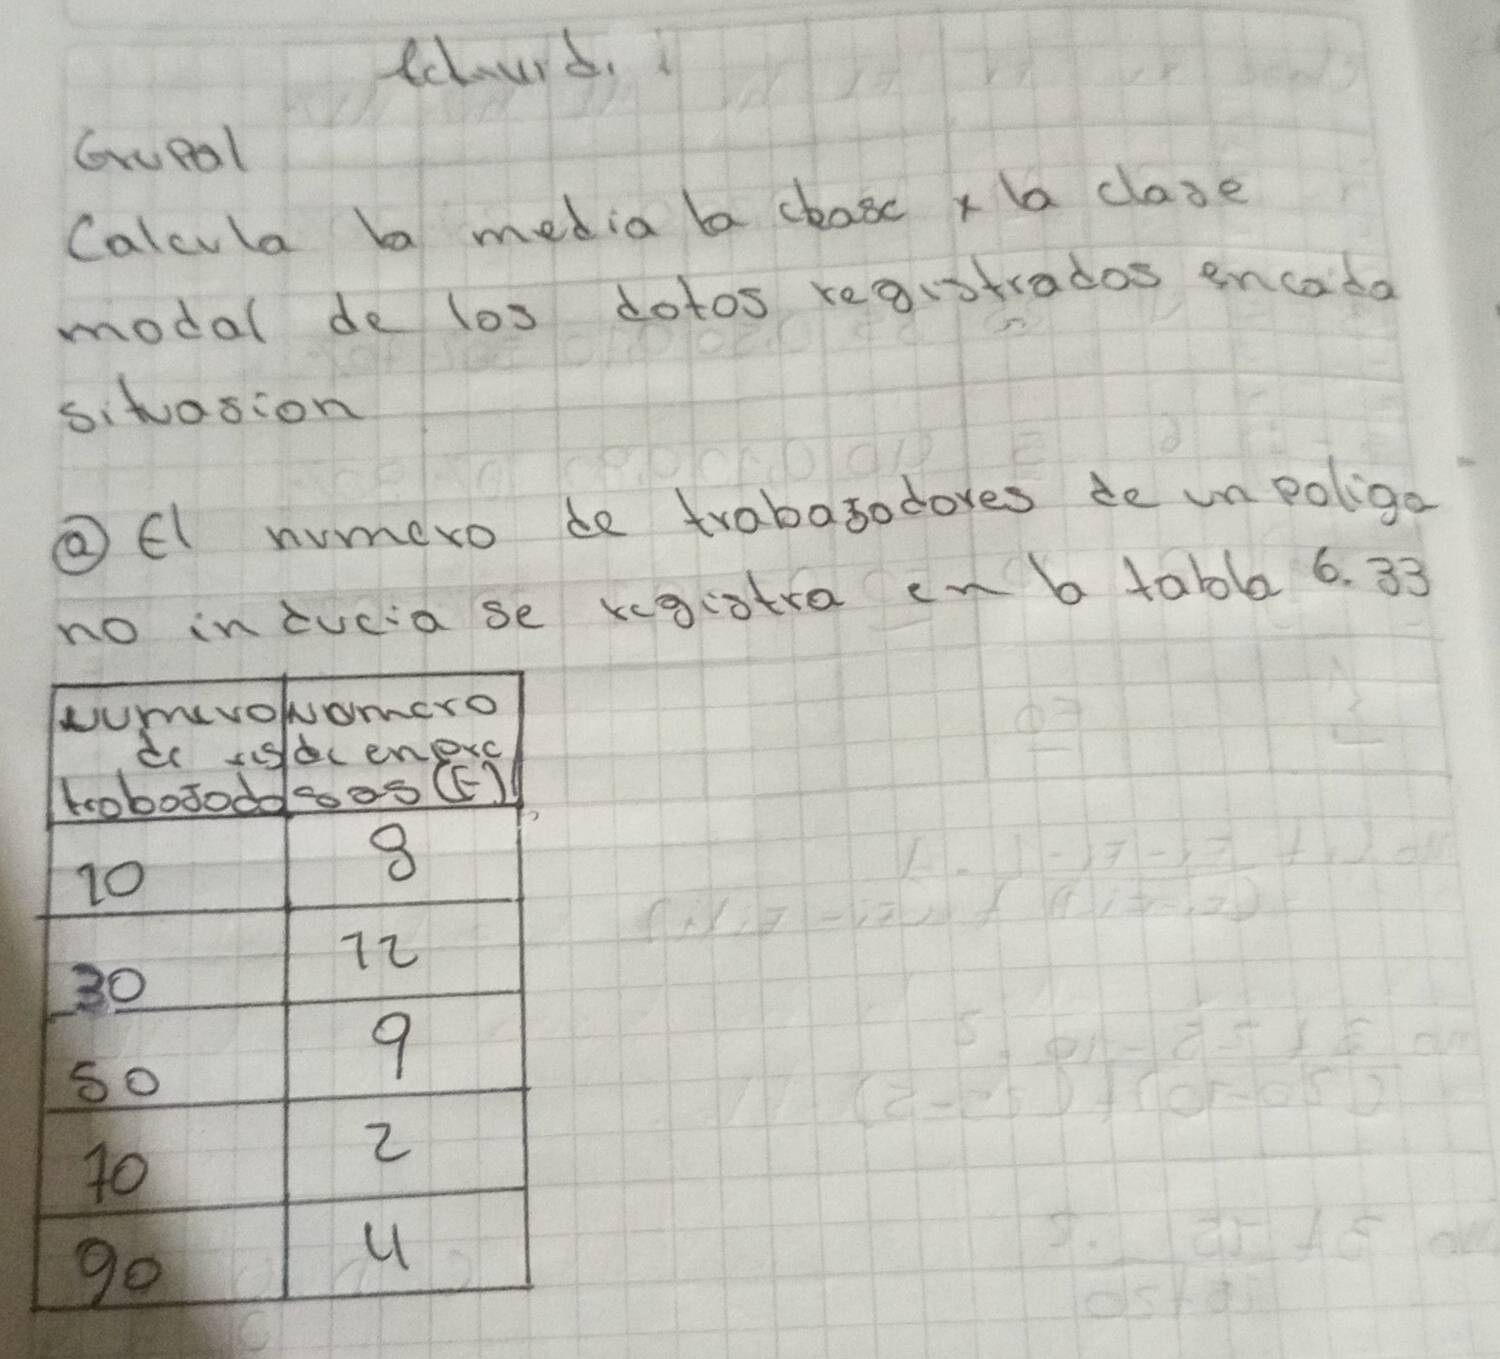 Grupal
Calcula la media la clase x la clase
modal de los datos registrados encada
situasion
@ El numero de trabajadores de un poliga
no inducia se registra en la tabla 6.33
numero Numero
de de enpre
trabajado sas (F)
10 8
30 12
50 9
70 2
90 4